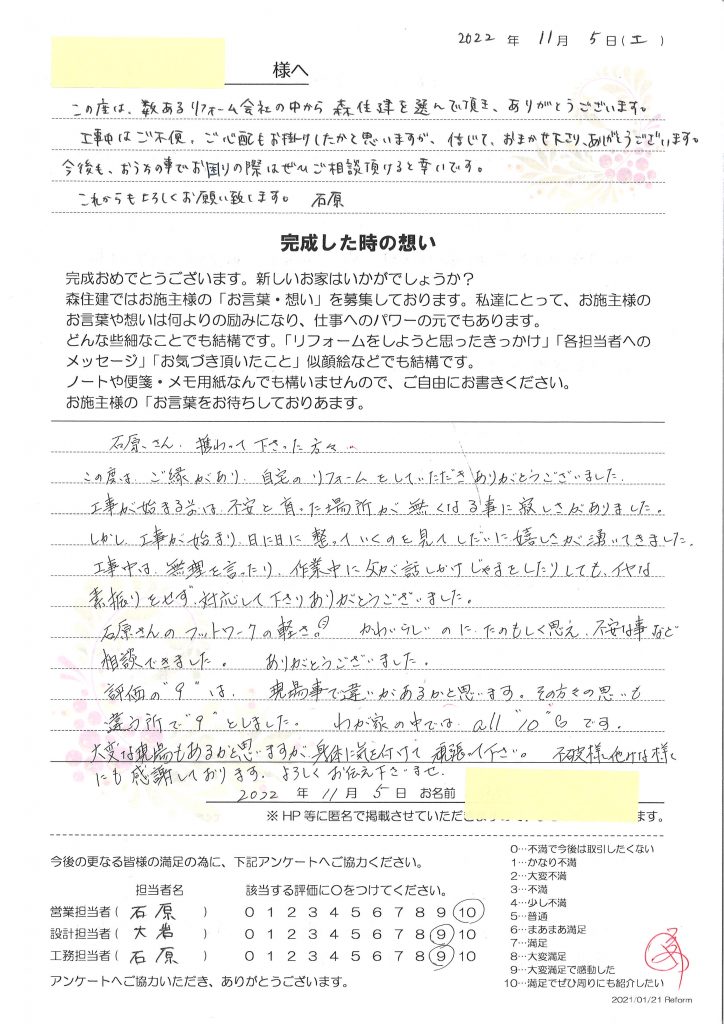 2022 年 11月 5日(土)
様へ
この度は、数あるリフォーム会社の中から 森住建を選んで頂き、ありがとうございます。
工事中はご不便、ご心配もお掛けしたかと思いますが、信じて、おまかせ下さり、ありがとうございます。
今後も、おうちの事でお困りの際はぜひご相談頂けると幸いです。
これからもよろしくお願い致します。 石原
完成した時の想い
完成おめでとうございます。新しいお家はいかがでしょうか?
森住建ではお施主様の「お言葉・想い」を募集しております。私達にとって、お施主様の
お言葉や想いは何よりの励みになり、仕事へのパワーの元でもあります。
どんな些細なことでも結構です。「リフォームをしようと思ったきっかけ」「各担当者への
メッセージ」「お気づき頂いたこと」似顔絵などでも結構です。
ノートや便箋・メモ用紙なんでも構いませんので、ご自由にお書きください。
お施主様の「お言葉をお待ちしておりあます。
石原さん、携わって下さった方々…
この度は、ご縁があり、自宅のリフォームをしていただきありがとうございました。
工事が始まる前は、不安と育った場所が無くなる事に寂しさがありました。
しかし、工事が始まり、日に日に整っていくのを見てしだいに嬉しさが湧いてきました。
工事中は、無理を言ったり、作業中に父が話しかけじゃまをしたりしても、イヤな
素振りをせず、対応して下さりありがとうございました。
石原さんのフットワークの軽さ。 かわいらしいのに、たのもしく思え、不安な事など
相談できました。 ありがとうございました。
評価の"9"は、現場事で違いがあるかと思います。その方々の思いも
違う所で"9"としました。 わが家の中では、all "10" です。
大変な現場もあるかと思いますが、身体に気を付けて頑張って下さい。 不破様、他けな様
にも感謝しております。よろしくお伝え下さいませ。
2022 年 11 月 5 日 お名前
※HP等に匿名で掲載させていただき ます。
今後の更なる皆様の満足の為に、下記アンケートへご協力ください。
担当者名 該当する評価に〇をつけてください。
営業担当者( 石原 ) 0 1 2 3 4 5 6 7 8 9 10
設計担当者( 大岩 ) 0 1 2 3 4 5 6 7 8 9 10
工務担当者( 石原 ) 0 1 2 3 4 5 6 7 8 9 10
アンケートへご協力いただき、ありがとうございます。
0…不満で今後は取引したくない
1…かなり不満
2…大変不満
3…不満
4…少し不満
5…普通
6…まあまあ満足
7…満足
8…大変満足
9…大変満足で感動した
10…満足でぜひ周りにも紹介したい
2021/01/21 Reform